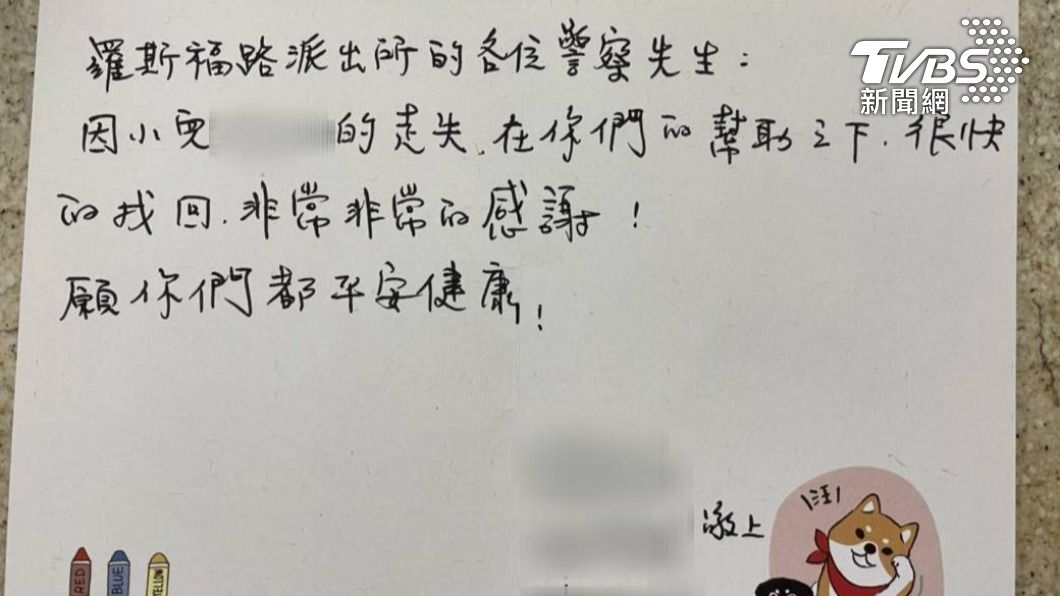 TVBS
新聞網
羅斯福路派出所的各位警察先生：
因小兒 的走失.在你們的幫助之下.很快
的找回.非常非常的感謝！
願你們都平安健康！
敬上
汪
RED
BLUE
YELLOW